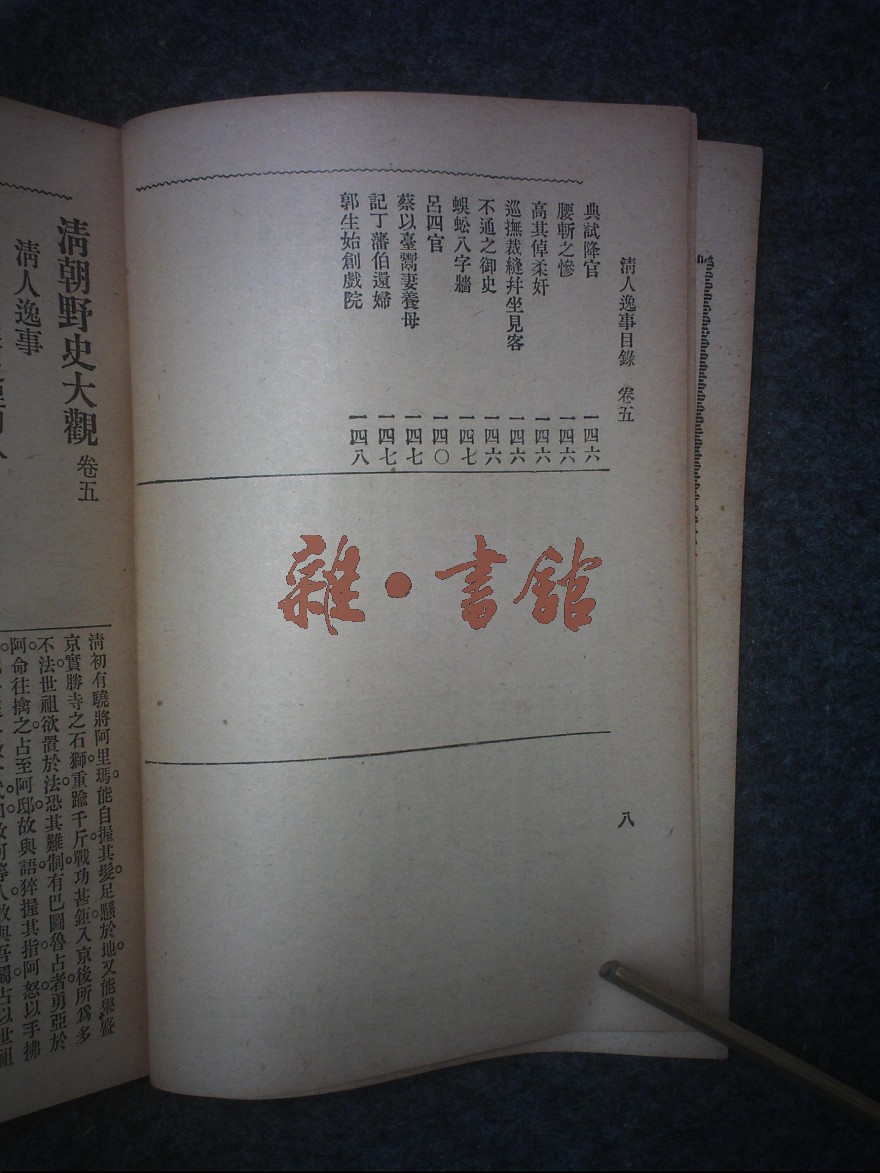 清人逸事目錄 卷五
典試降官 一四六
腰斬之慘 一四六
高其倬柔奸 一四六
巡撫裁縫幷坐見客 一四六
不通之御史 一四六
蜈蚣八字牆 一四七
呂四官 一四〇
蔡以臺鬻妻養母 一四七
記丁藩伯還婦 一四七
郭生始創戲院 一四八
八
雜·書館
清朝野史大觀 卷五
清人逸事
清初有驍將阿里瑪。能自握其髮。足懸於地。又能舉盛
京實勝寺之石獅。重踰千斤。戰功甚鉅。入京後所爲多
不法。世祖欲置於法。恐其難制。有巴圖魯占者。勇亞於
阿。命往擒之。占至阿邸。故與語。猝握其指。阿怒。以手拂